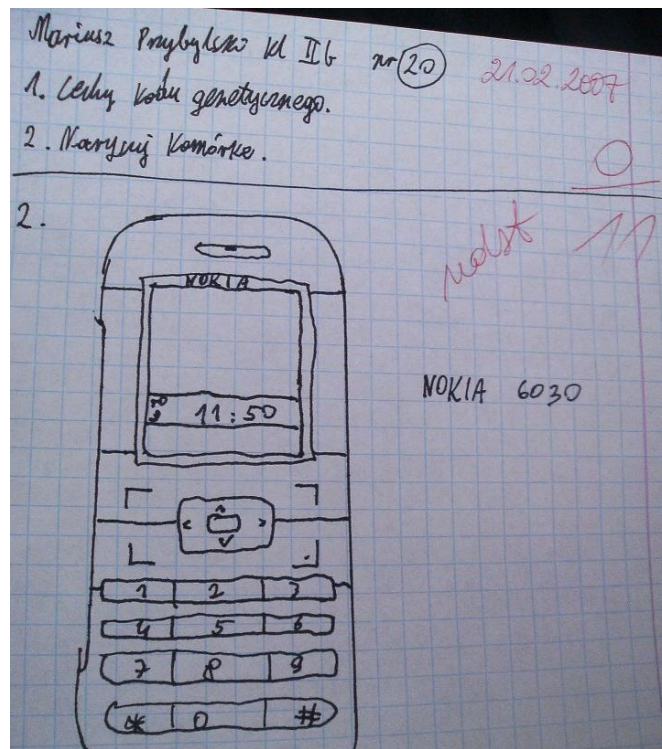 Mariusz Przybylski kl IIb nr 20 21.02.2007
1. Cechy kodu genetycznego.
2. Narysuj Komórke.
0
11
ndst
2.
NOKIA
11:50
NOKIA 6030
1 2 3
4 5 6
7 8 9
* 0 #